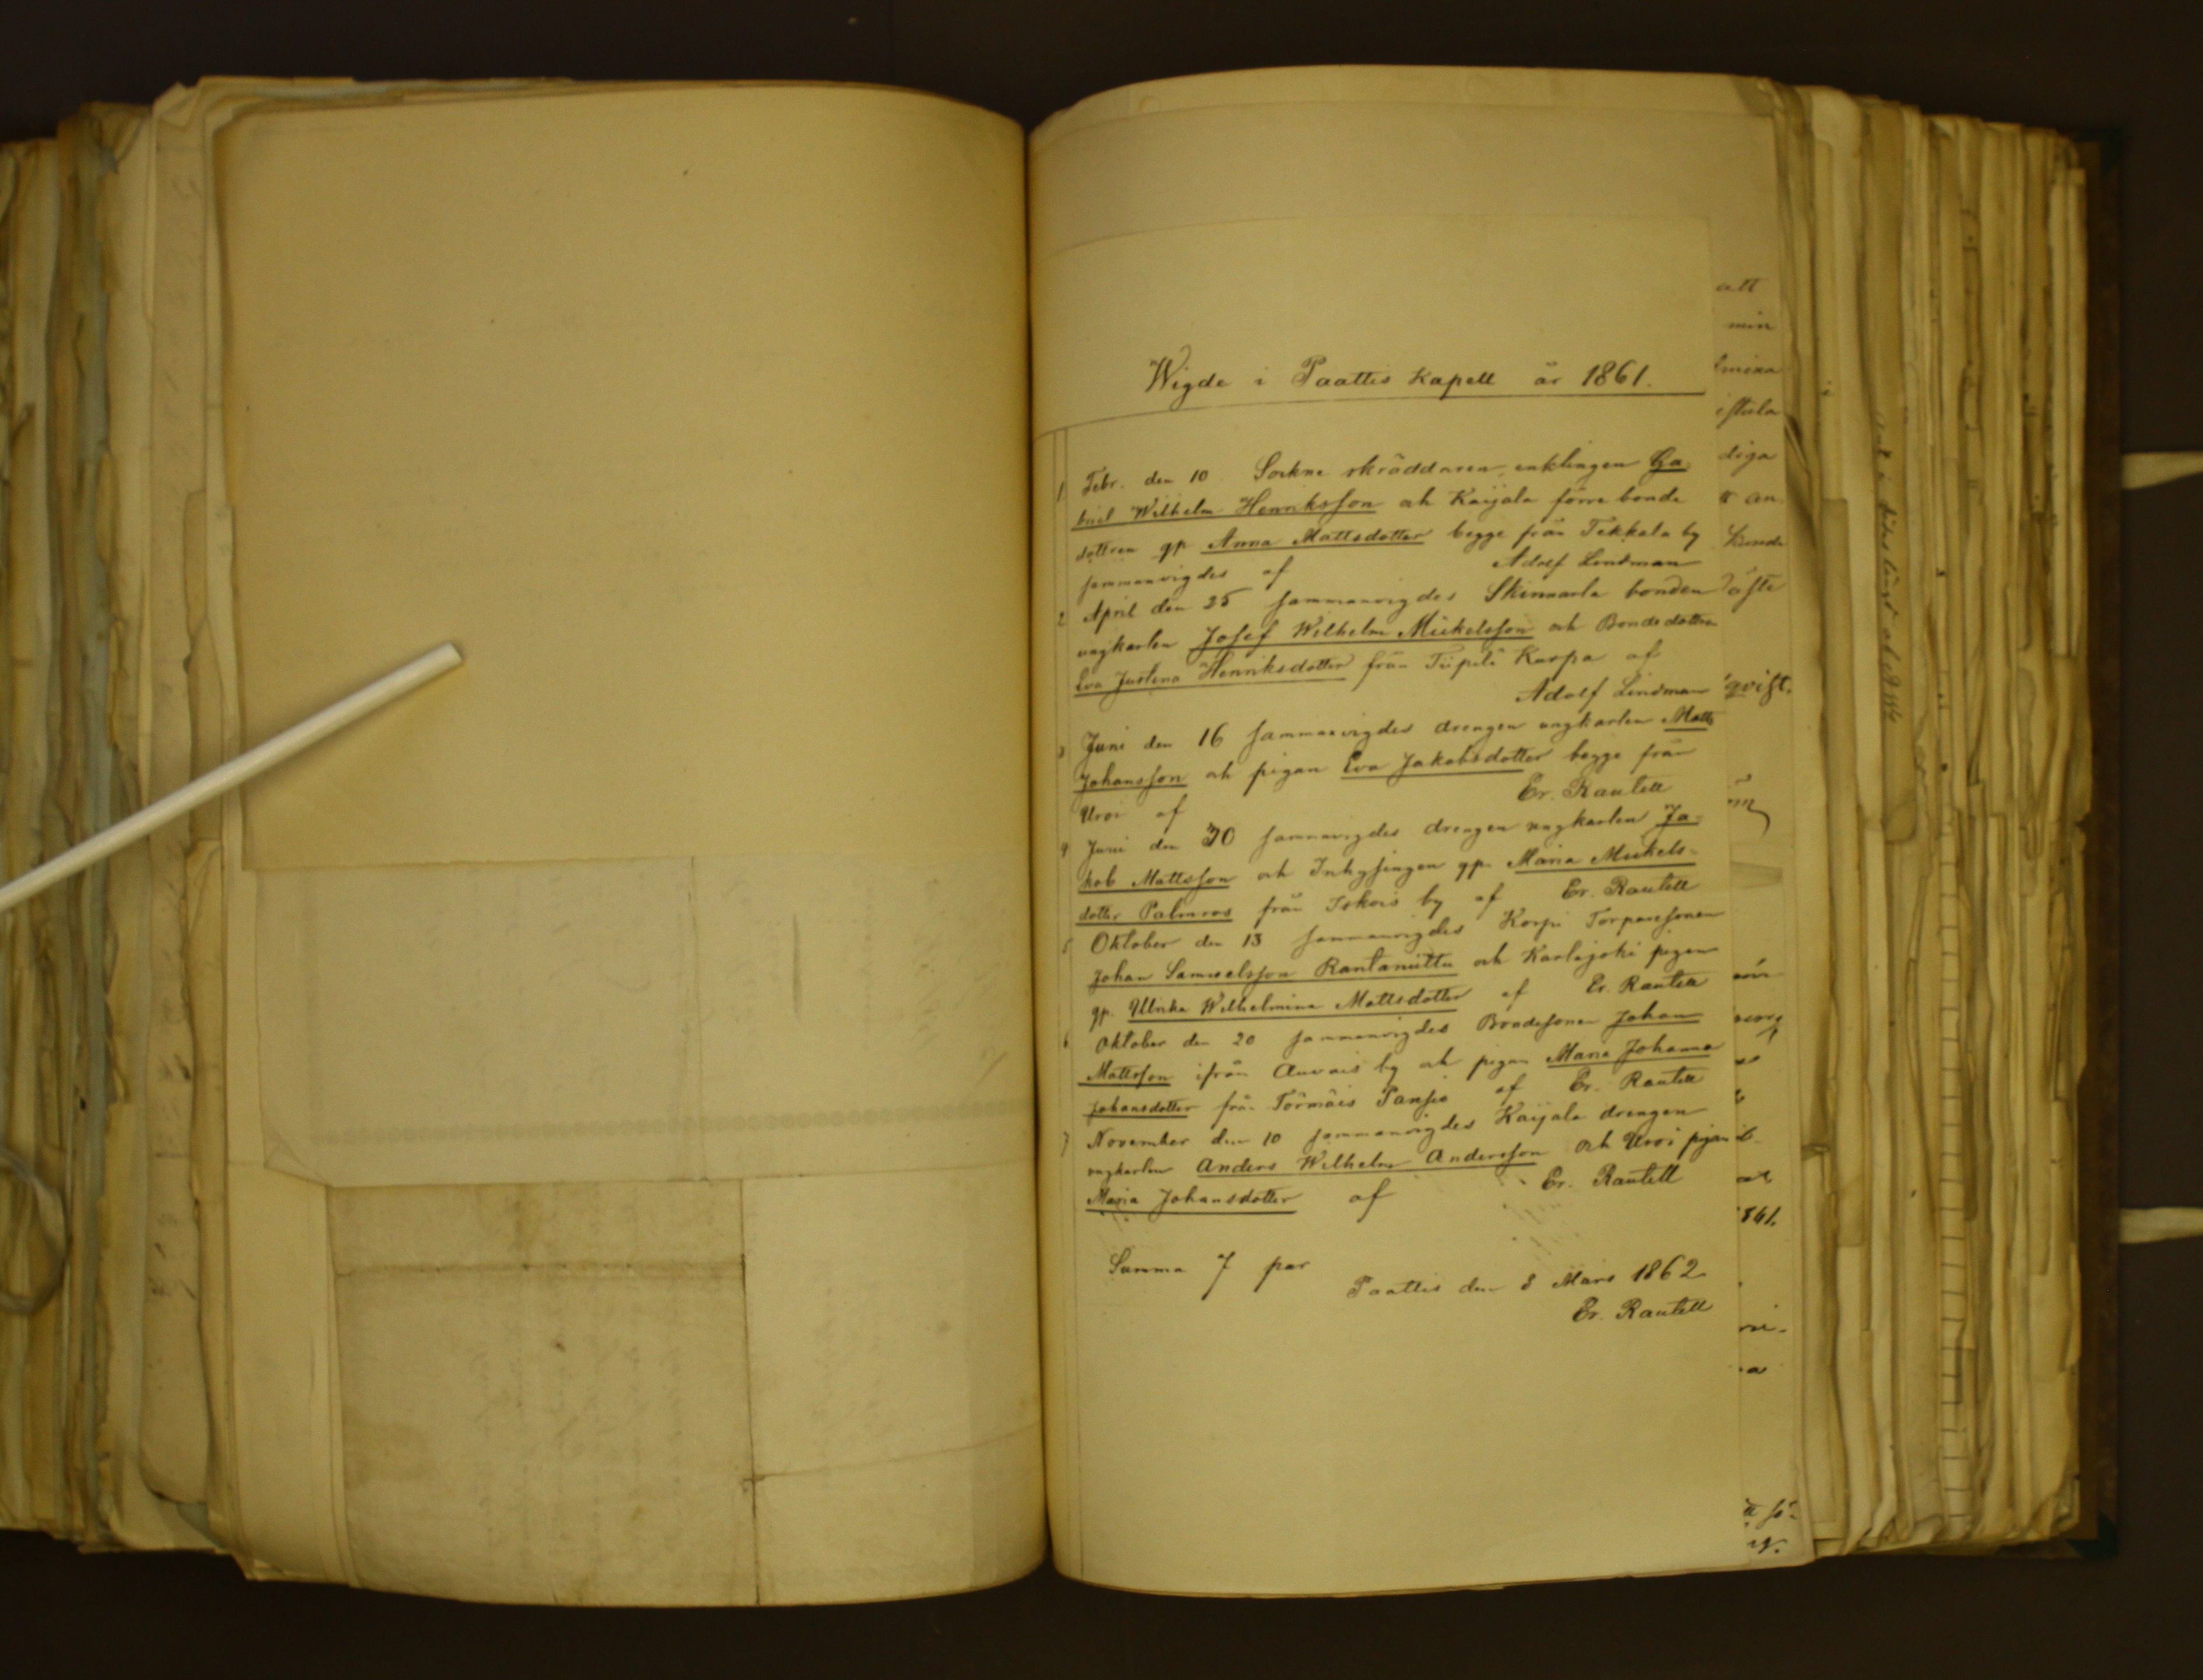 Wigde i Paattis Kapell år 1861.
1 Febr. den 10 Sockne skräddaren, enklingen Ga-
briel Wilhelm Henriksson och Kaijala förre bonde
dottren qp Anna Mattsdotter begge från Tekkala by
sammanvigdes af Adolf Lindman
2 April den 25 sammanvigdes Skinnarla bonden
ungkarlen Josef Wilhelm Mickelsson och Bondedottren
Eva Justina Henriksdotter från Tiipilä Karpa af
Adolf Lindman
3 Juni den 16 sammanvigdes drengen ungkarlen Matts
Johansson och pigan Eva Jakobsdotter begge från
Uroi af Er. Rautell
4 Juni den 30 sammanvigdes drengen ungkarlen Ja-
kob Mattsson och Inhysingen qp. Maria Mickels-
dotter Palmros från Iskois by af Er. Rautell
5 Oktober den 13 sammanvigdes Korpi Torparesonen
Johan Samuelsson Rantaniittu och Karlajoki pigan
qp. Ulrika Wilhelmina Mattsdotter af Er. Rautell
6 Oktober den 20 sammanvigdes Bondesonen Johan
Mattsson ifrån Auvais by och pigan Maria Johanna
Johansdotter från Törmäis Panjo af Er. Rautell
7 November den 10 sammanvigdes Kaijala drengen
ungkarlen Anders Wilhelm Andersson och Uroi pigan
Maria Johansdotter af Er. Rautell
Summa 7 par
Paattis den 8 Mars 1862
Er. Rautell
att
min
diga
qvist.